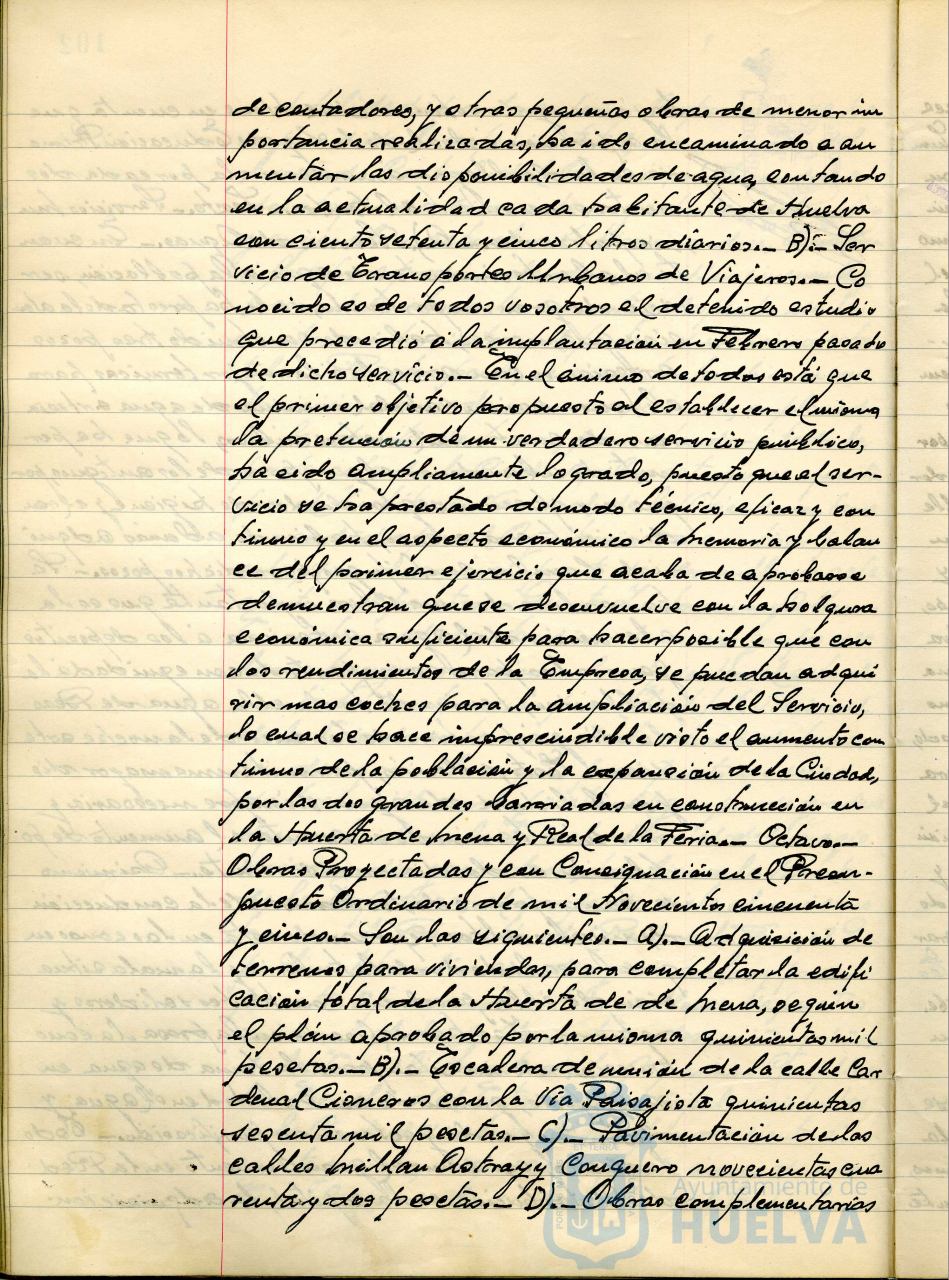 de contadores, y otras pequeñas obras de menor im
portancia realizadas, ha ido encaminado a au
mentar las disponibilidades de agua, contando
en la actualidad cada habitante de Huelva
con ciento setenta y cinco litros diarios.— B).— Ser
vicio de Transportes Urbanos de Viajeros.— Co
nocido es de todos vosotros el detenido estudio
que precedió a la implantación en Febrero pasado
de dicho servicio.— En el ánimo de todos está que
el primer objetivo propuesto al establecer el mismo,
la pretención de un verdadero servicio público,
ha sido ampliamente logrado, puesto que el ser-
vicio se ha prestado de modo técnico, eficaz y con
tinuo y en el aspecto económico la Memoria y balan
ce del primer ejercicio que acaba de aprobarse
demuestran que se desenvuelve con la holgura
económica suficiente para hacer posible que con
los rendimientos de la Empresa, se puedan adqui
rir mas coches para la ampliación del Servicio,
lo cual se hace imprescindible visto el aumento con
tinuo de la población y la expansión de la Ciudad,
por las dos grandes barriadas en construcción en
la Huerta de Mena y Real de la Feria.— Octavo.—
Obras Proyectadas y con Consignación en el Presu-
puesto Ordinario de mil Novecientos cincuenta
y cinco.— Son las siguientes.— A).— Adquisición de
terrenos para viviendas, para completar la edifi
cación total de la Huerta de de Mena, según
el plán aprobado por la misma quinientas mil
pesetas.— B).— Escalera de unión de la calle Car
denal Cisneros con la Vía Paisajista quinientas
sesenta mil pesetas.— C).— Pavimentación de las
calles Millan Astray y Conquero novecientas cua
renta y dos pesetas.— D).— Obras complementarias
Ayuntamiento de
HUELVA